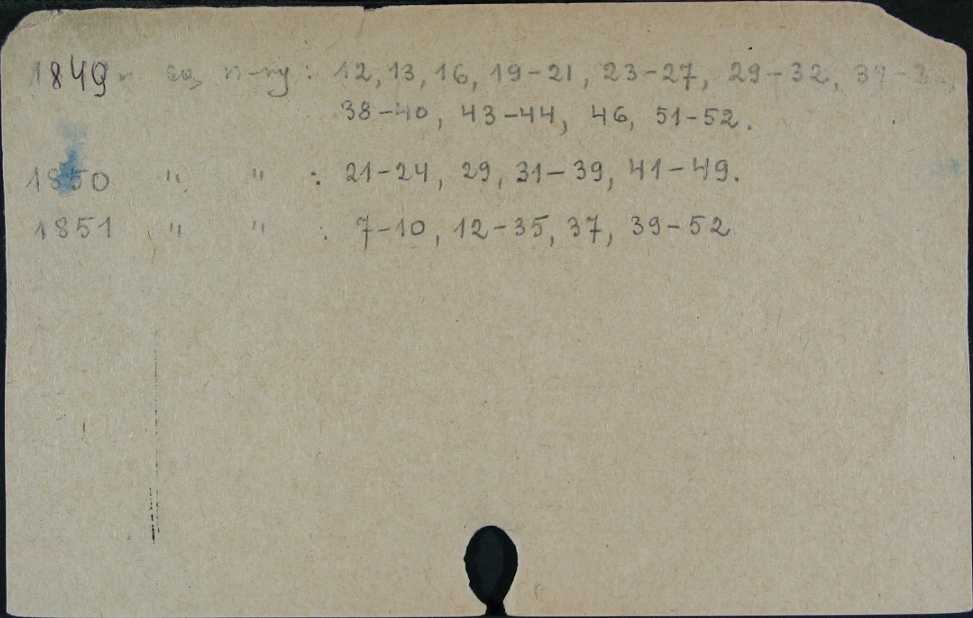 1849 r. są n-ry : 12, 13, 16, 19-21, 23-27, 29-32,
38-40, 43-44, 46, 51-52.
1850 " " : 21-24, 29, 31-39, 41-49.
1851 " " : 7-10, 12-35, 37, 39-52